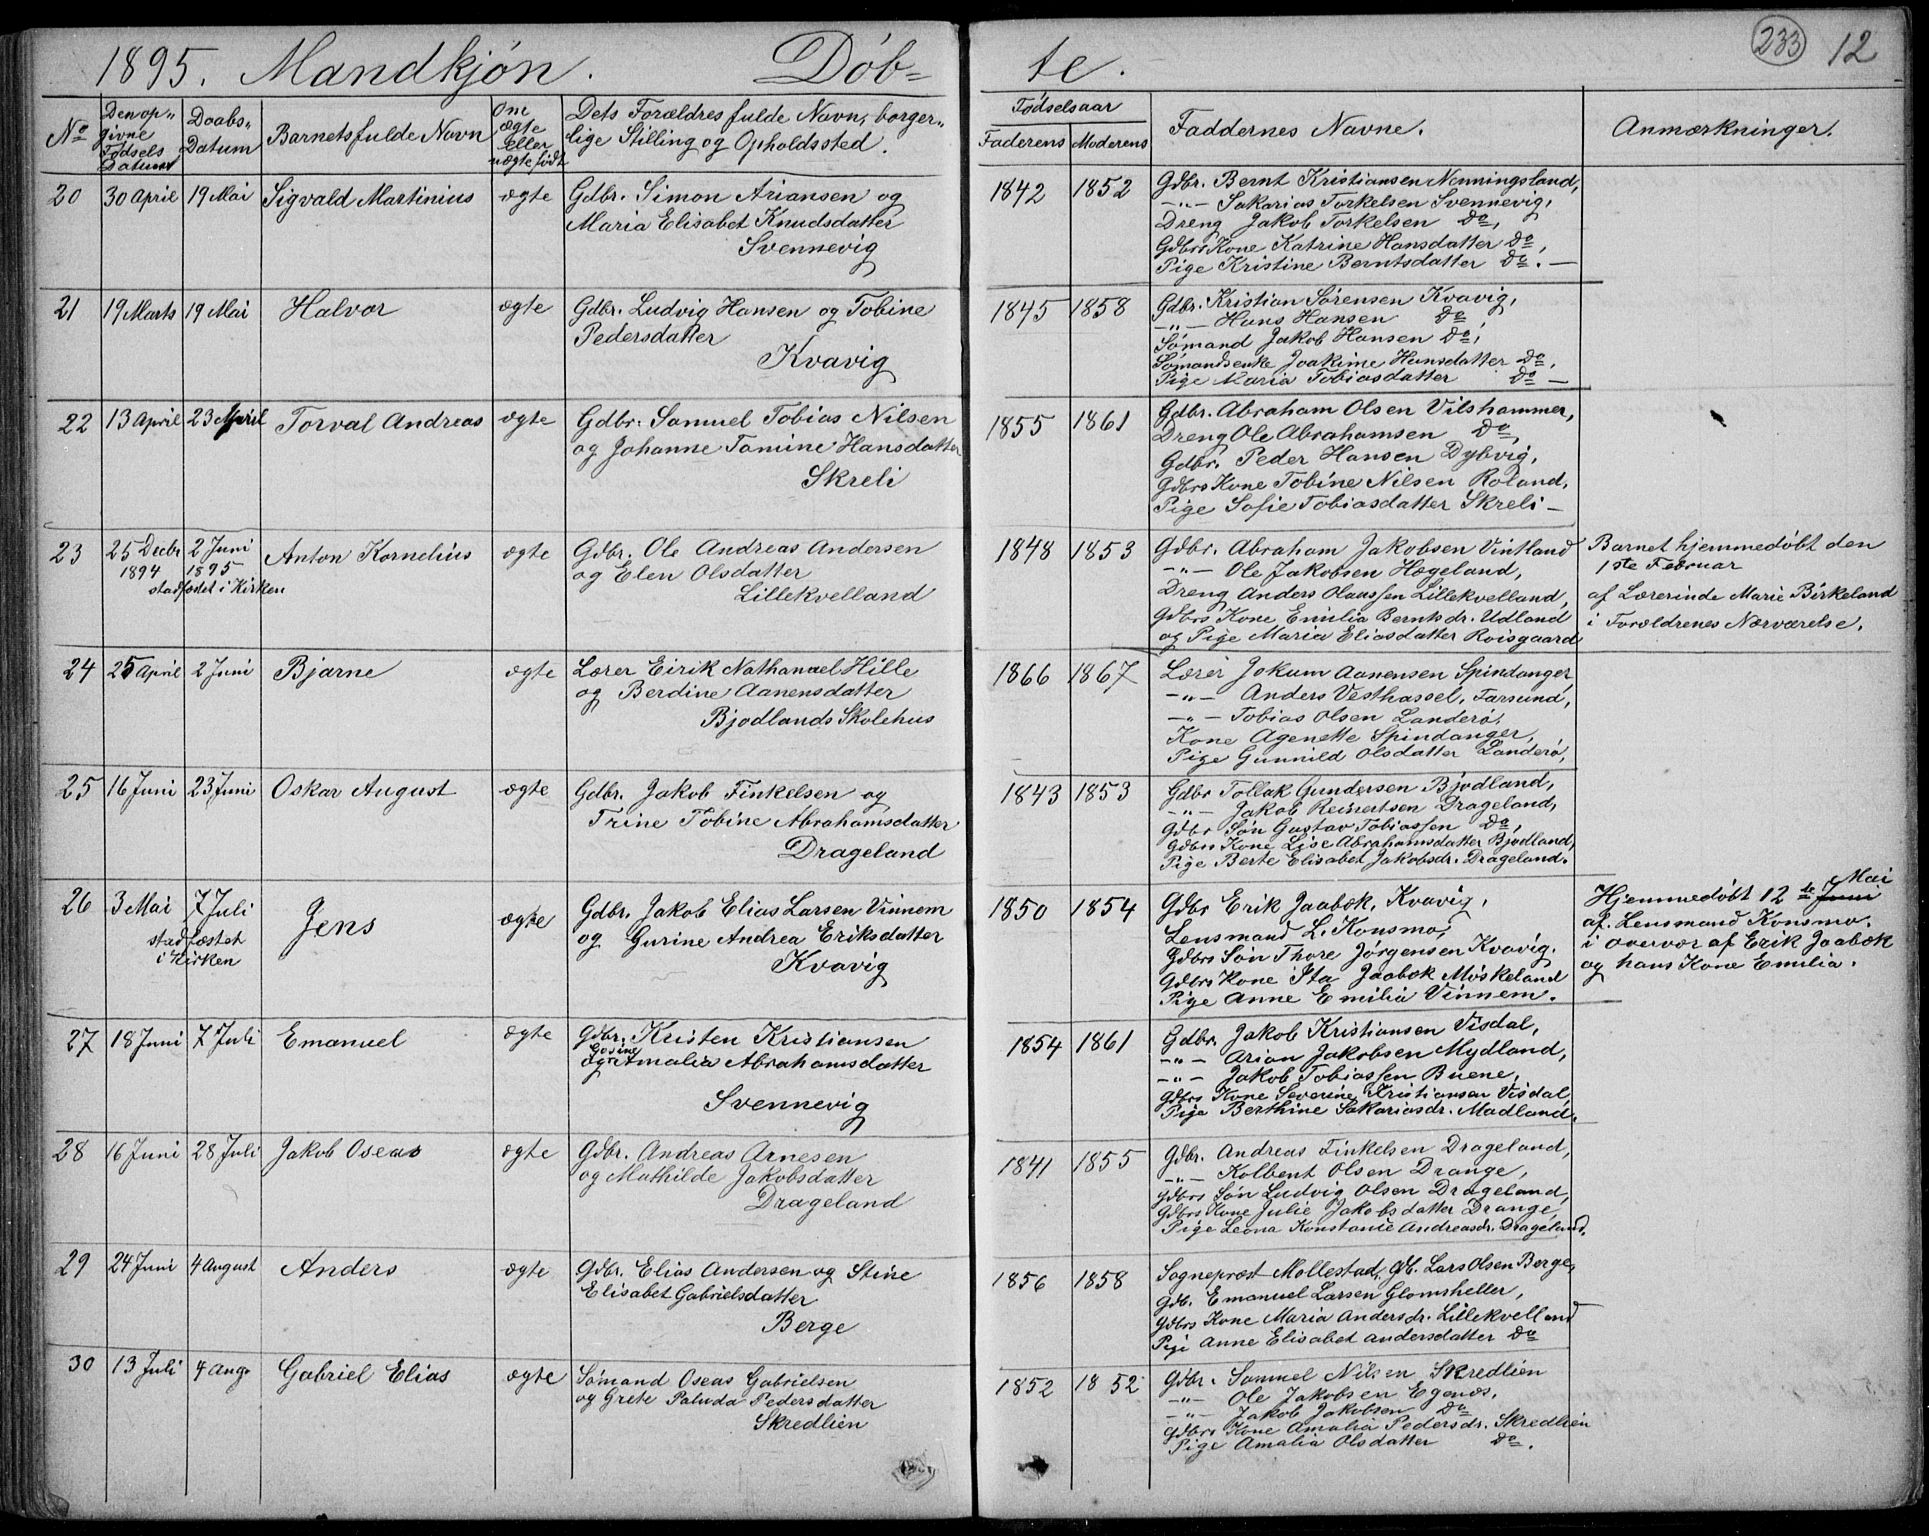 1895. Mandkjøn. Døb-
te. 233 12
No
Den op-
givne
Fødsels
Datum
Daabs-
Datum
Barnets fulde Navn
Om
ægte
eller
uægte født
Dets Forældres fulde Navn, borger-
lige Stilling og Opholdssted.
Fødselsaar
Faderens Moderens
Faddernes Navne.
Anmærkninger.
20 30 April 19 Mai Sigvald Martinius ægte
Gdbr. Simon Ariansen og
Maria Elisabet Knudsdatter
Svennevig
1842 1852
Gdbr. Bernt Kristiansen Nenningsland,
-"- Sakarias Torkelsen Svennevig,
Dreng Jakob Torkelsen Do,
Gdbrs Kone Katrine Hansdatter Do,
Pige Kristine Berntsdatter Do. —
21 19 Marts 19 Mai Halvor ægte
Gdbr. Ludvig Hansen og Tobine
Pedersdatter
Kvavig
1845 1858
Gdbr. Kristian Sørensen Kvavig,
-"- Hans Hansen Do,
Sømand Jakob Hansen Do,
Sømandsenke Joakime Hansdatter Do,
Pige Maria Tobiasdatter Do —
22 13 April 23 April Torval Andreas ægte
Gdbr. Samuel Tobias Nilsen
og Johanne Tomine Hansdatter
Skreli
1855 1861
Gdbr. Abraham Olsen Vilshammer,
Dreng Ole Abrahamsen Do,
Gdbr. Peder Hansen Dybvig,
Gdbrs Kone Tobine Nilsen Roland,
Pige Sofie Tobiasdatter Skreli —
23 25 Decbr 2 Juni Anton Kornelius ægte
1894 1895
stadfæstet i Kirken
Gdbr. Ole Andreas Andersen
og Elen Olsdatter
Lillekvelland
1848 1853
Gdbr. Abraham Jakobsen Vintland
-"- Ole Jakobsen Hægeland,
Dreng Anders Olaussen Lillekvelland,
Gdbrs Kone Emilia Berntsdr. Udland
og Pige Maria Eliasdatter Roisgaard
Barnet hjemmedøbt den
1ste Februar
af Lærerinde Marie Birkeland
i Forældrenes Nærværelse.
24 25 April 2 Juni Bjarne ægte
Lærer Eirik Nathanael Hille
og Berdine Aanensdatter
Bjodlands Skolehus
1866 1867
Lærer Jokum Aanensen Spindanger
-"- Anders Vesthassel, Farsund,
-"- Tobias Olsen Landerø,
Kone Agenette Spindanger,
Pige Gunnild Olsdatter Landerø,
25 16 Juni 23 Juni Oskar August ægte
Gdbr. Jakob Finkelsen og
Trine Tobine Abrahamsdatter
Drageland
1843 1853
Gdbr Tollak Gundersen Bjodland,
-"- Jakob Reinertsen Drageland,
Gdbr Søn Gustav Tobiassen Do,
Gdbrs Kone Lise Abrahamsdatter Bjodland,
Pige Berte Elisabet Jakobsdr. Drageland.
26 3 Mai 7 Juli Jens ægte
stadfæstet
i Kirken
Gdbr. Jakob Elias Larsen Vinnem
og Gurine Andrea Eriksdatter
Kvavig
1850 1854
Gdbr Erik Jaabæk, Kvavig,
Lensmand L. Konsmo,
Gdbrs Søn Thore Jørgensen Kvavig.
Gdbrs Kone Ita Jaabæk Møskeland
Pige Anne Emilia Vinnem.
Mai
Hjemmedøbt 12te Juni
af Lensmand Konsmo.
i overvær af Erik Jaabæk
og hans Kone Emilia.
27 18 Juni 7 Juli Emanuel ægte
Gdbr. Kristen Kristiansen
Gosine
og Amalia Abrahamsdatter
Svennevig
1854 1861
Gdbr. Jakob Kristiansen Visdal,
-"- Arian Jakobsen Mydland,
-"- Jakob Tobiassen Buene,
Gdbrs Kone Severine Kristiansen Visdal,
Pige Berthine Sakariasdr. Madland.
28 16 Juni 28 Juli Jakob Oseas ægte
Gdbr. Andreas Arnesen
og Mathilde Jakobsdatter
Drageland
1841 1855
Gdbr. Andreas Finkelsen Drageland,
-"- Kolbent Olsen Drange,
Gdbrs Søn Ludvig Olsen Drageland,
Gdbrs Kone Julie Jakobsdatter Drange,
Pige Leona Konstanie Andreasdr. Drageland.
29 24 Juni 4 August Anders ægte
Gdbr. Elias Andersen og Stine
Elisabet Gabrielsdatter
Berge
1856 1858
Sogneprest Mollestad, Gdb. Lars Olsen Berge,
Gdb. Emanuel Larsen Glomsheller,
Gdbrs Kone Maria Andersdr. Lillekvelland
Pige Anne Elisabet Andersdatter Do
30 13 Juli 4 Aug. Gabriel Elias ægte
Sømand Oseas Gabrielsen
og Grete Paluda Pedersdatter
Skredlien
1852 1852
Gdbr. Samuel Nilsen Skredlien
-"- Ole Jakobsen Egenes,
-"- Jakob Jakobsen Do
Gdbrs Kone Amalia Pedersdr. Skredlien
Pige Amalia Olsdatter Do.